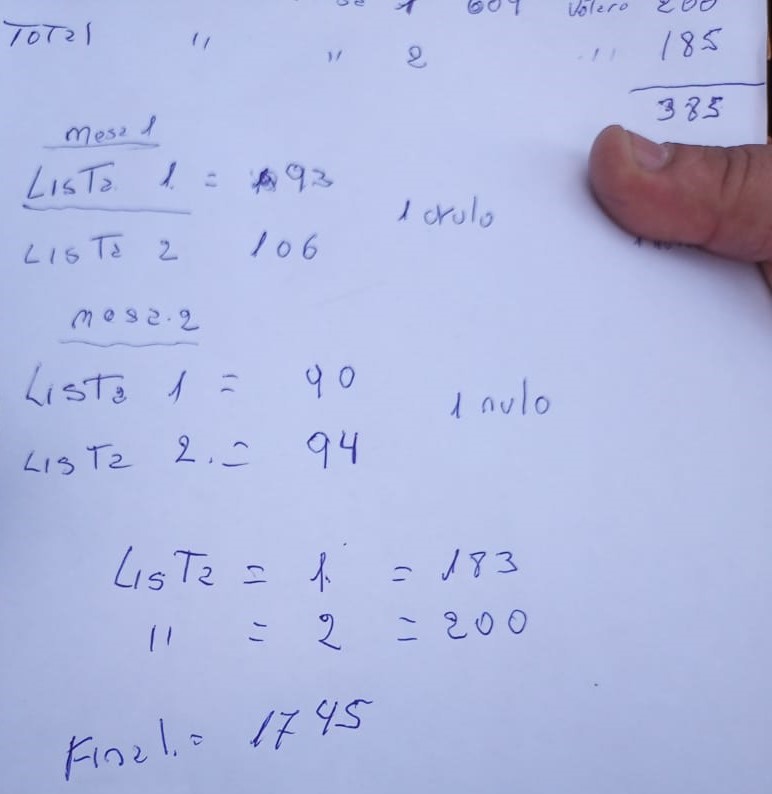 1 604 Votero 200
Total " " 2 " 185
385
mesa 1
Lista 1 = 93
1 nulo
Lista 2 106
mesa.2
Lista 1 = 90
1 nulo
Lista 2. = 94
Lista = 1. = 183
" = 2 = 200
Final. = 1745